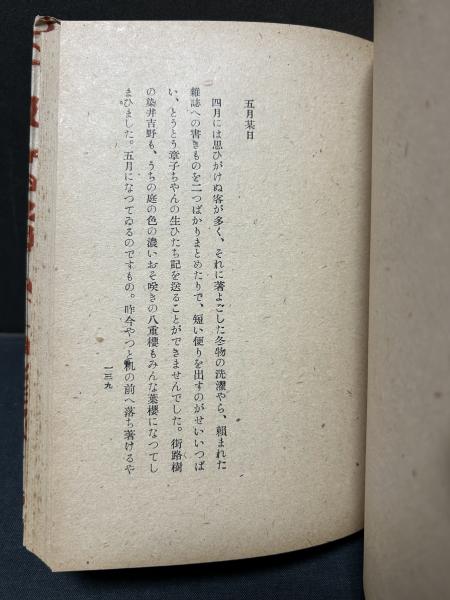 五月某日
四月には思ひがけぬ客が多く、それに著よごした冬物の洗濯やら、頼まれた
雜誌への書きものを二つばかりまとめたりで、短い便りを出すのがせいいつぱ
い、とうとう章子ちやんの生ひたち記を送ることができませんでした。街路樹
の染井吉野も、うちの庭の色の濃いおそ咲きの八重櫻もみんな葉櫻になつてし
まひました。五月になつてゐるのですもの。昨今やつと机の前へ落ち著けるや
一三九